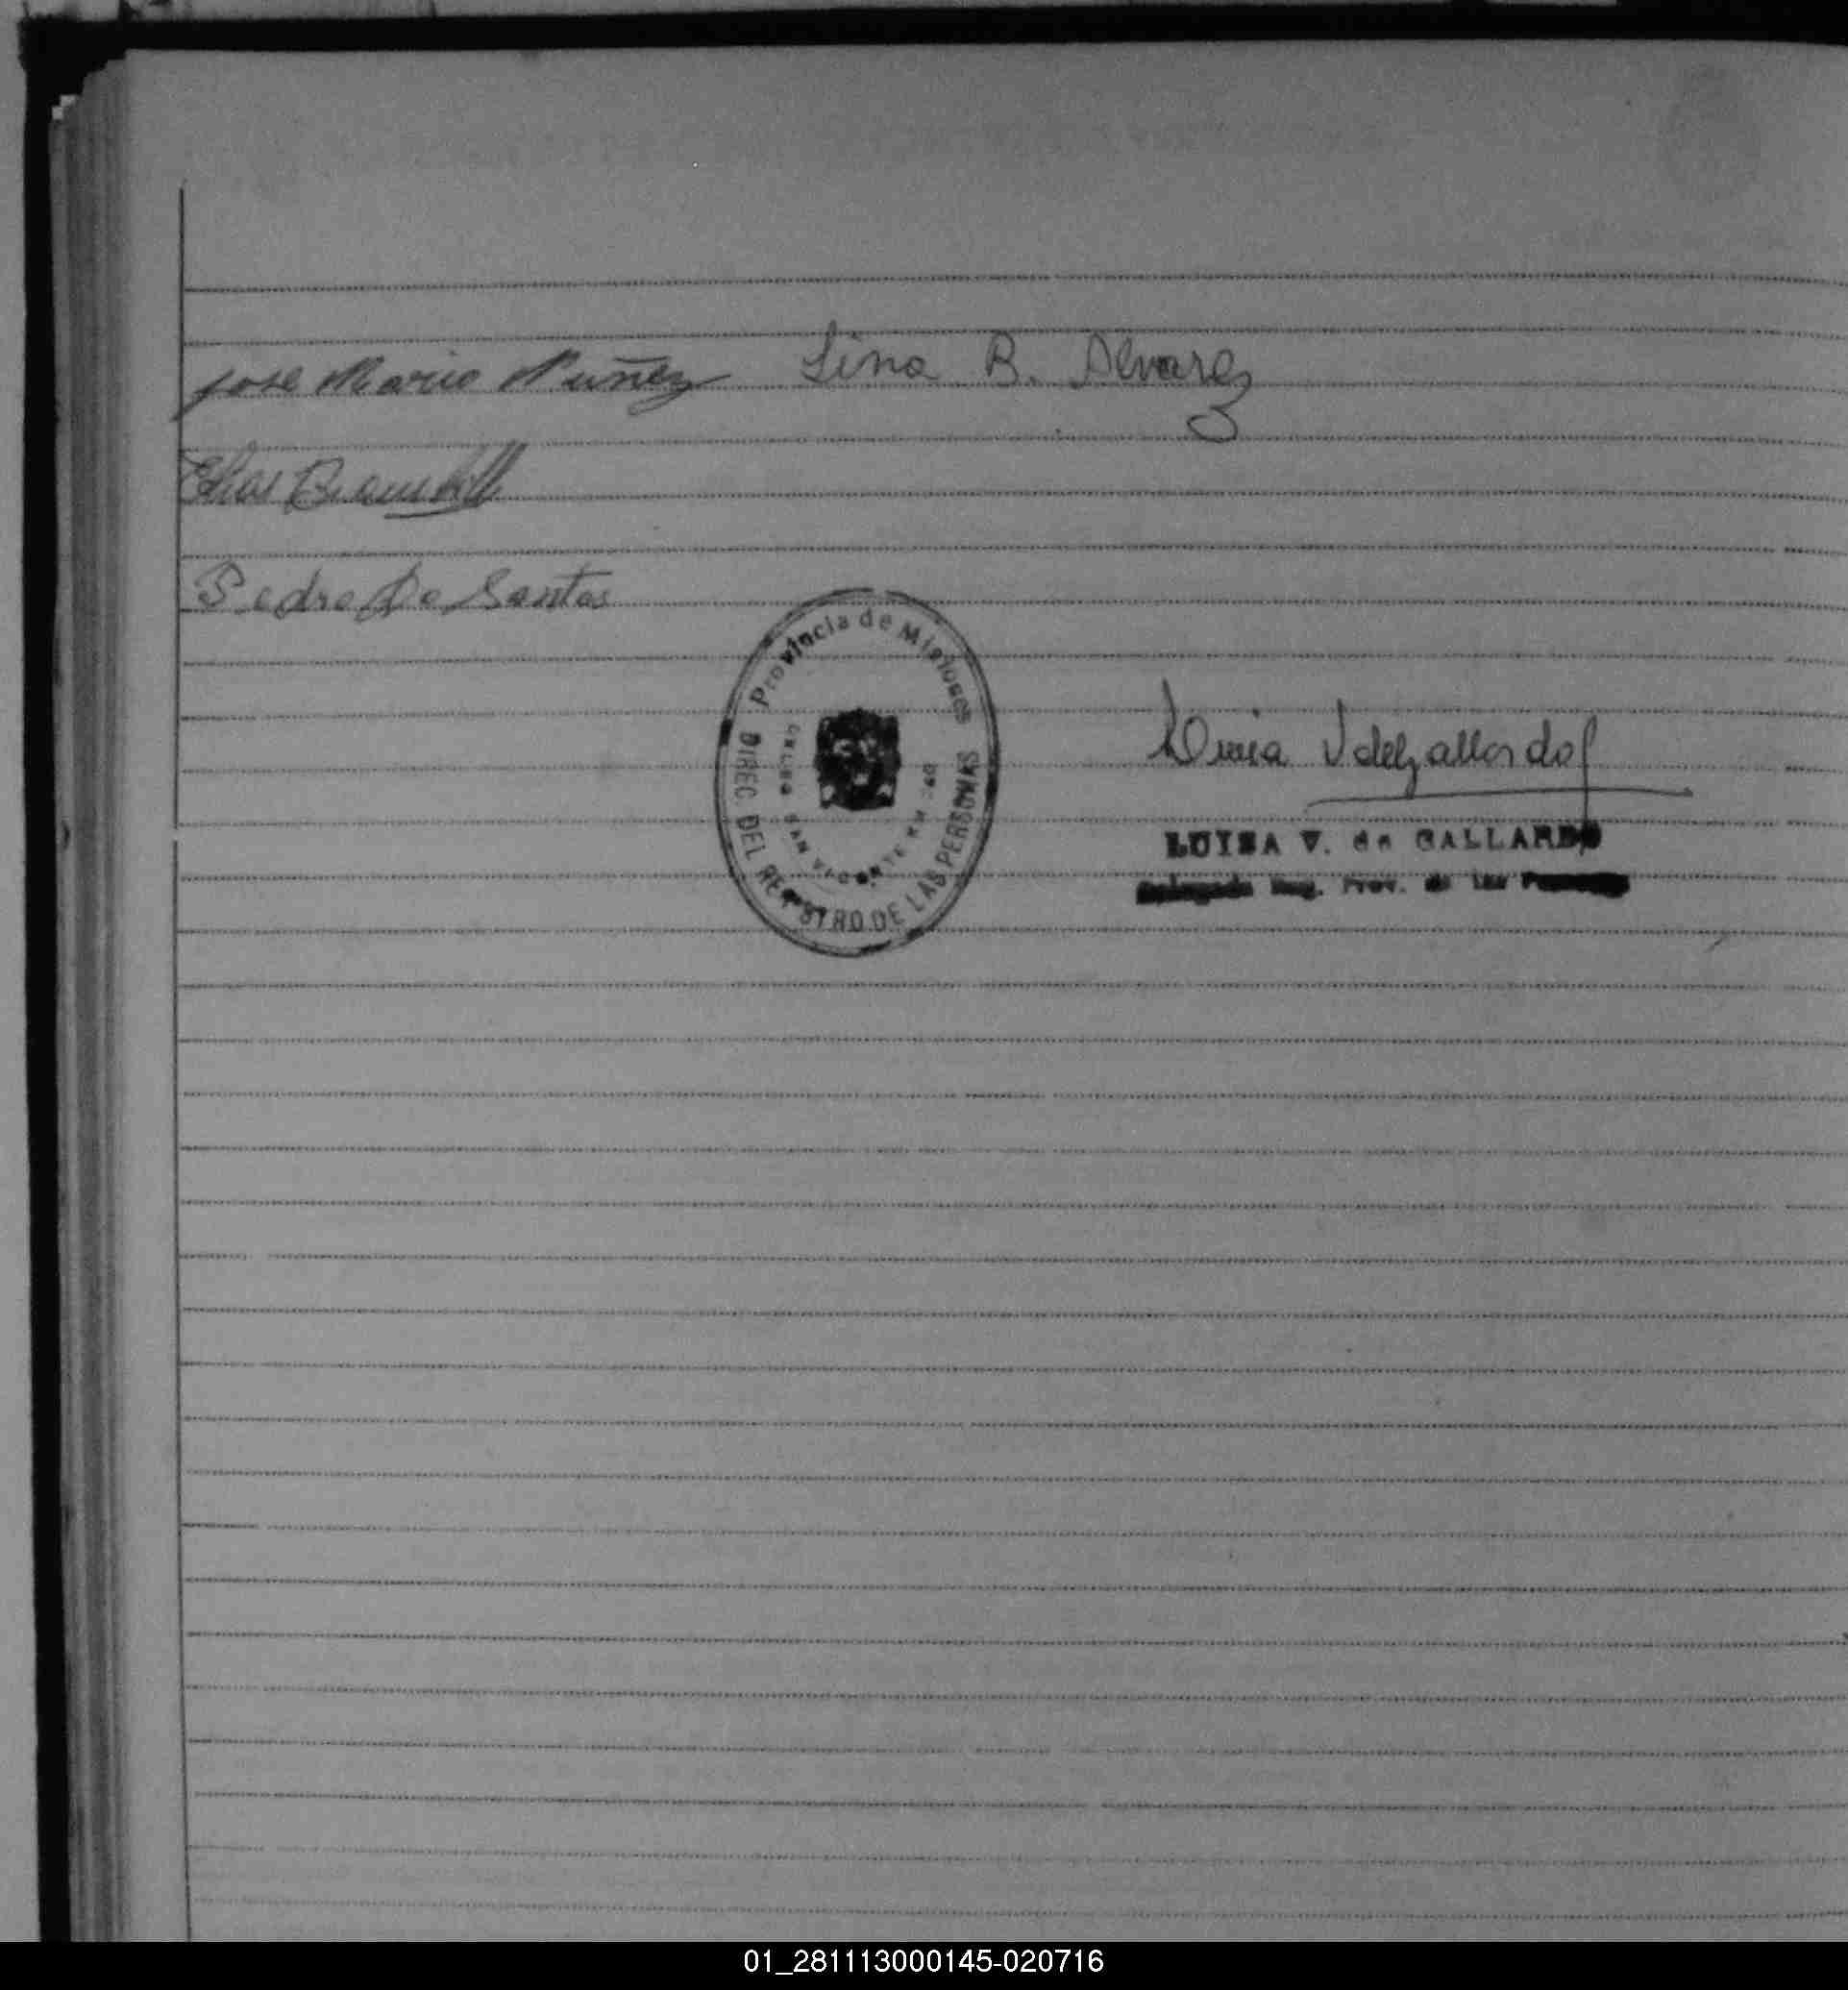 Jose Mario Nuñez Lina B. Alvarez
Elias
Pedro Do Santos
Provincia de Misiones
CALLES SAN VICENTE KM
DIREC. DEL REGISTRO DE LAS PERSONAS
Luisa V de Gallardo
LUISA V. de GALLARDO
Delegada Reg. Prov. de las Personas
01_281113000145-020716